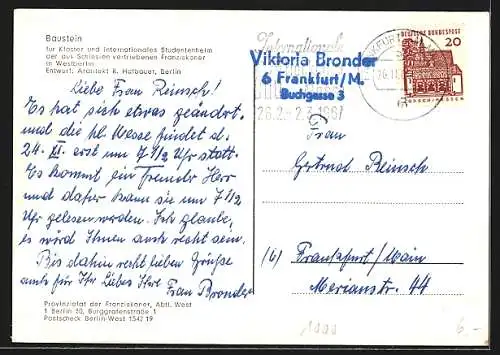 Baustein
für Kloster und internationales Studentenheim
der aus Schlesien vertriebenen Franziskaner
in Westberlin
Entwurf: Architekt R. Hofbauer, Berlin
Liebe Frau Reinsch!
Es hat sich etwas geändert
und die hl. Messe findet d.
24. XI. erst um 7 1/2 Uhr statt.
Es kommt ein fremder Herr
und daher kann sie um 7 1/2
Uhr gelesen werden. Ich glaube,
es wird Ihnen auch recht sein.
Bis dahin recht lieben Grüße
auch für Ihr Liebes Ihre
Frau Bronder
Provinzialat der Franziskaner, Abtl. West
1 Berlin 30, Burggrafenstraße 1
Postscheck Berlin-West 1542 19
Internationale
26.2.-2.3.1967
Viktoria Bronder
6 Frankfurt/M.
Buchgasse 3
DEUTSCHE BUNDESPOST
20
Frau
Gertrud Reinsch
(6) Frankfurt/Main
Merianstr. 44
6.-